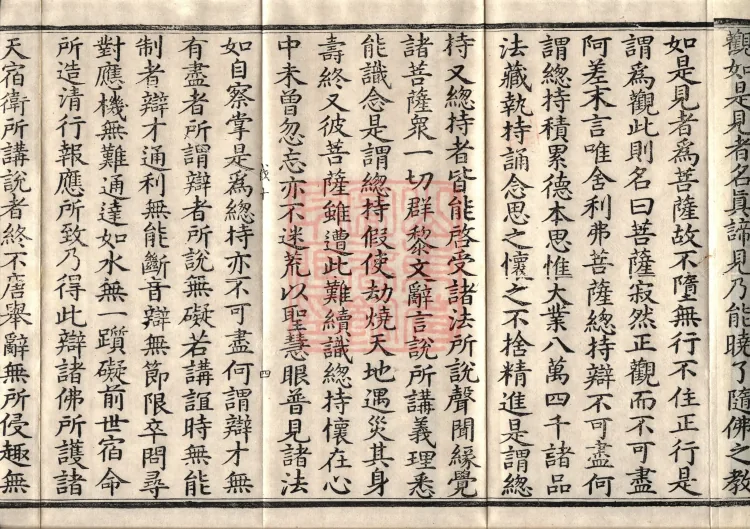 觀如是見者名真諦見乃能曉了隨佛之教
如是見者為菩薩故不墮無行不住正行是
謂為觀此則名曰菩薩寂然正觀而不可盡
阿差末言唯舍利弗菩薩總持辯不可盡何
謂總持積累德本思惟大業八萬四千諸品
法藏執持誦念思之懷之不捨精進是謂總
持又總持者皆能啓受諸法所說聲聞緣覺
諸菩薩眾一切群黎文辭言說所講義理悉
能識念是謂總持假使劫燒天地遇災其身
壽終又彼菩薩雖遭此難續識總持懷在心
中未曾忽忘亦不迷荒以聖慧眼普見諸法
四
如自察掌是為總持亦不可盡何謂辯才無
有盡者所謂辯者所說無礙若講誼時無能
制者辯才通利無能斷音辯無節限卒問尋
對應機無難通達如水無一躓礙前世宿命
所造清行報應所致乃得此辯諸佛所護諸
天宿衛所講說者終不唐舉辭無所侵趣無